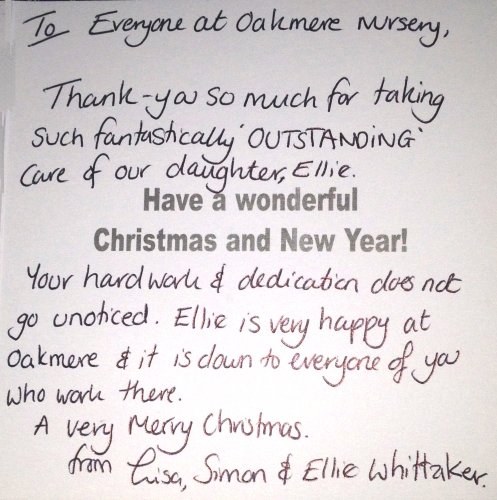 To Everyone at Oakmere Nursery,
Thank-you so much for taking
such fantastically 'OUTSTANDING'
care of our daughter, Ellie.
Have a wonderful
Christmas and New Year!
Your hard work & dedication does not
go unoticed. Ellie is very happy at
Oakmere & it is down to everyone of you
who work there.
A very Merry Christmas.
from Lisa, Simon & Ellie Whittaker.